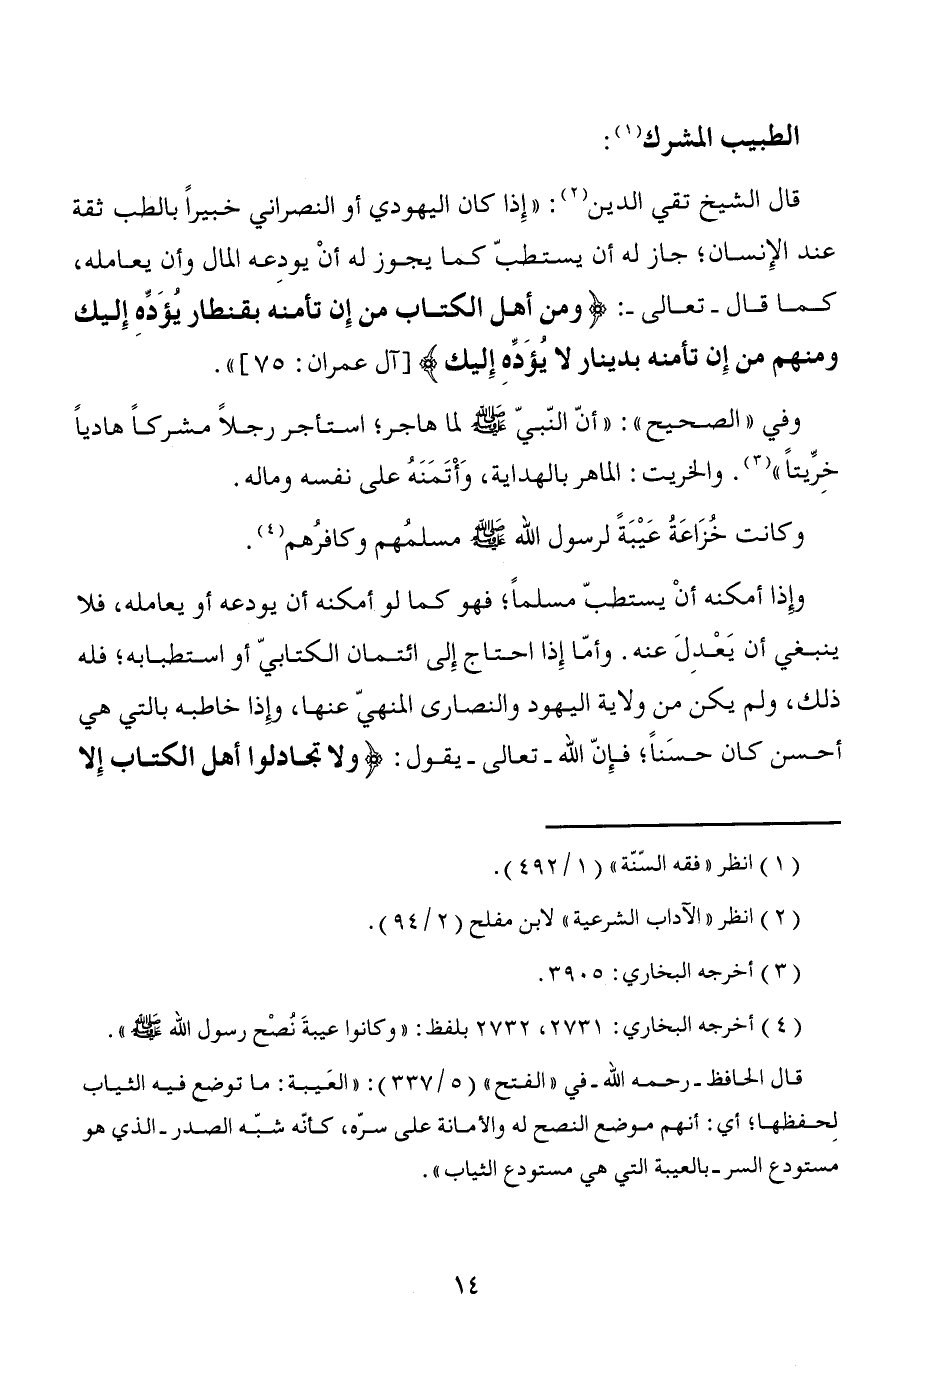 الطبيب المشرك(١):
قال الشيخ تقي الدين(٢): «إذا كان اليهودي أو النصراني خبيراً بالطب ثقة
عند الإنسان؛ جاز له أن يستطبّ كما يجوز له أنْ يودعه المال وأن يعامله،
كما قال ـ تعالى ـ: ﴿ومن أهل الكتاب من إن تأمنه بقنطار يُؤَدِّه إليك
ومنهم من إن تأمنه بدينار لا يُؤَدِّه إليك﴾ [آل عمران: ٧٥]».
وفي «الصحيح»: «أنّ النّبيّ ﷺ لما هاجر؛ استأجر رجلاً مشركاً هادياً
خرِّيتاً»(٣). والخريت: الماهر بالهداية، وَأْتَمَنَهُ على نفسه وماله.
وكانت خُزَاعَةُ عَيْبَةً لرسول الله ﷺ مسلمُهم وكافرُهم(٤).
وإذا أمكنه أنْ يستطبّ مسلماً؛ فهو كما لو أمكنه أن يودعه أو يعامله، فلا
ينبغي أن يَعْدِلَ عنه. وأمّا إذا احتاج إلى ائتمان الكتابيّ أو استطبابه؛ فله
ذلك، ولم يكن من ولاية اليهود والنصارى المنهيّ عنها، وإذا خاطبه بالتي هي
أحسن كان حسَناً؛ فإنّ الله ـ تعالى ـ يقول: ﴿ولا تجادلوا أهل الكتاب إلا
(١) انظر «فقه السّنّة» (١/ ٤٩٢).
(٢) انظر «الآداب الشرعية» لابن مفلح (٢/ ٩٤).
(٣) أخرجه البخاري: ٣٩٠٥.
(٤) أخرجه البخاري: ٢٧٣١، ٢٧٣٢ بلفظ: «وكانوا عيبةَ نُصْح رسول الله ﷺ».
قال الحافظ ـ رحمه الله ـ في «الفتح» (٥/ ٣٣٧): «العَيبة: ما توضع فيه الثياب
لحفظها؛ أي: أنهم موضع النصح له والأمانة على سرّه، كأنّه شبّه الصدر ـ الذي هو
مستودع السر ـ بالعيبة التي هي مستودع الثياب».
١٤